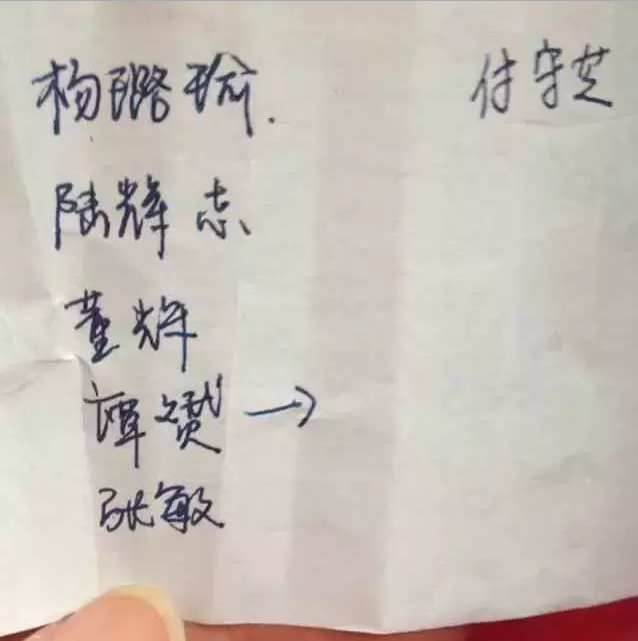 杨璐瑜. 付守芝
陆辉志
董辉
谭赟 →
张敏